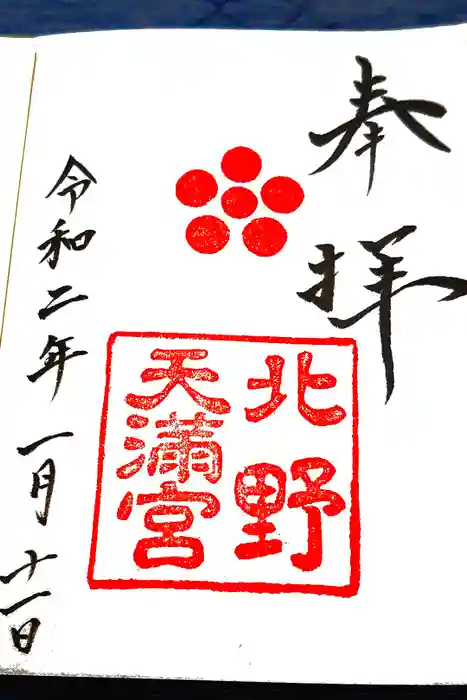 奉拝
北野
天満宮
令和二年一月十一日